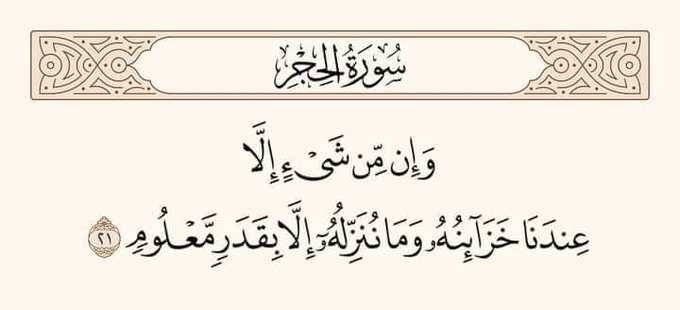 سُورَةُ الْحِجْرِ
وَإِن مِّن شَىْءٍ إِلَّا
عِندَنَا خَزَآئِنُهُۥ وَمَا نُنَزِّلُهُۥٓ إِلَّا بِقَدَرٍ مَّعْلُومٍ ٢١